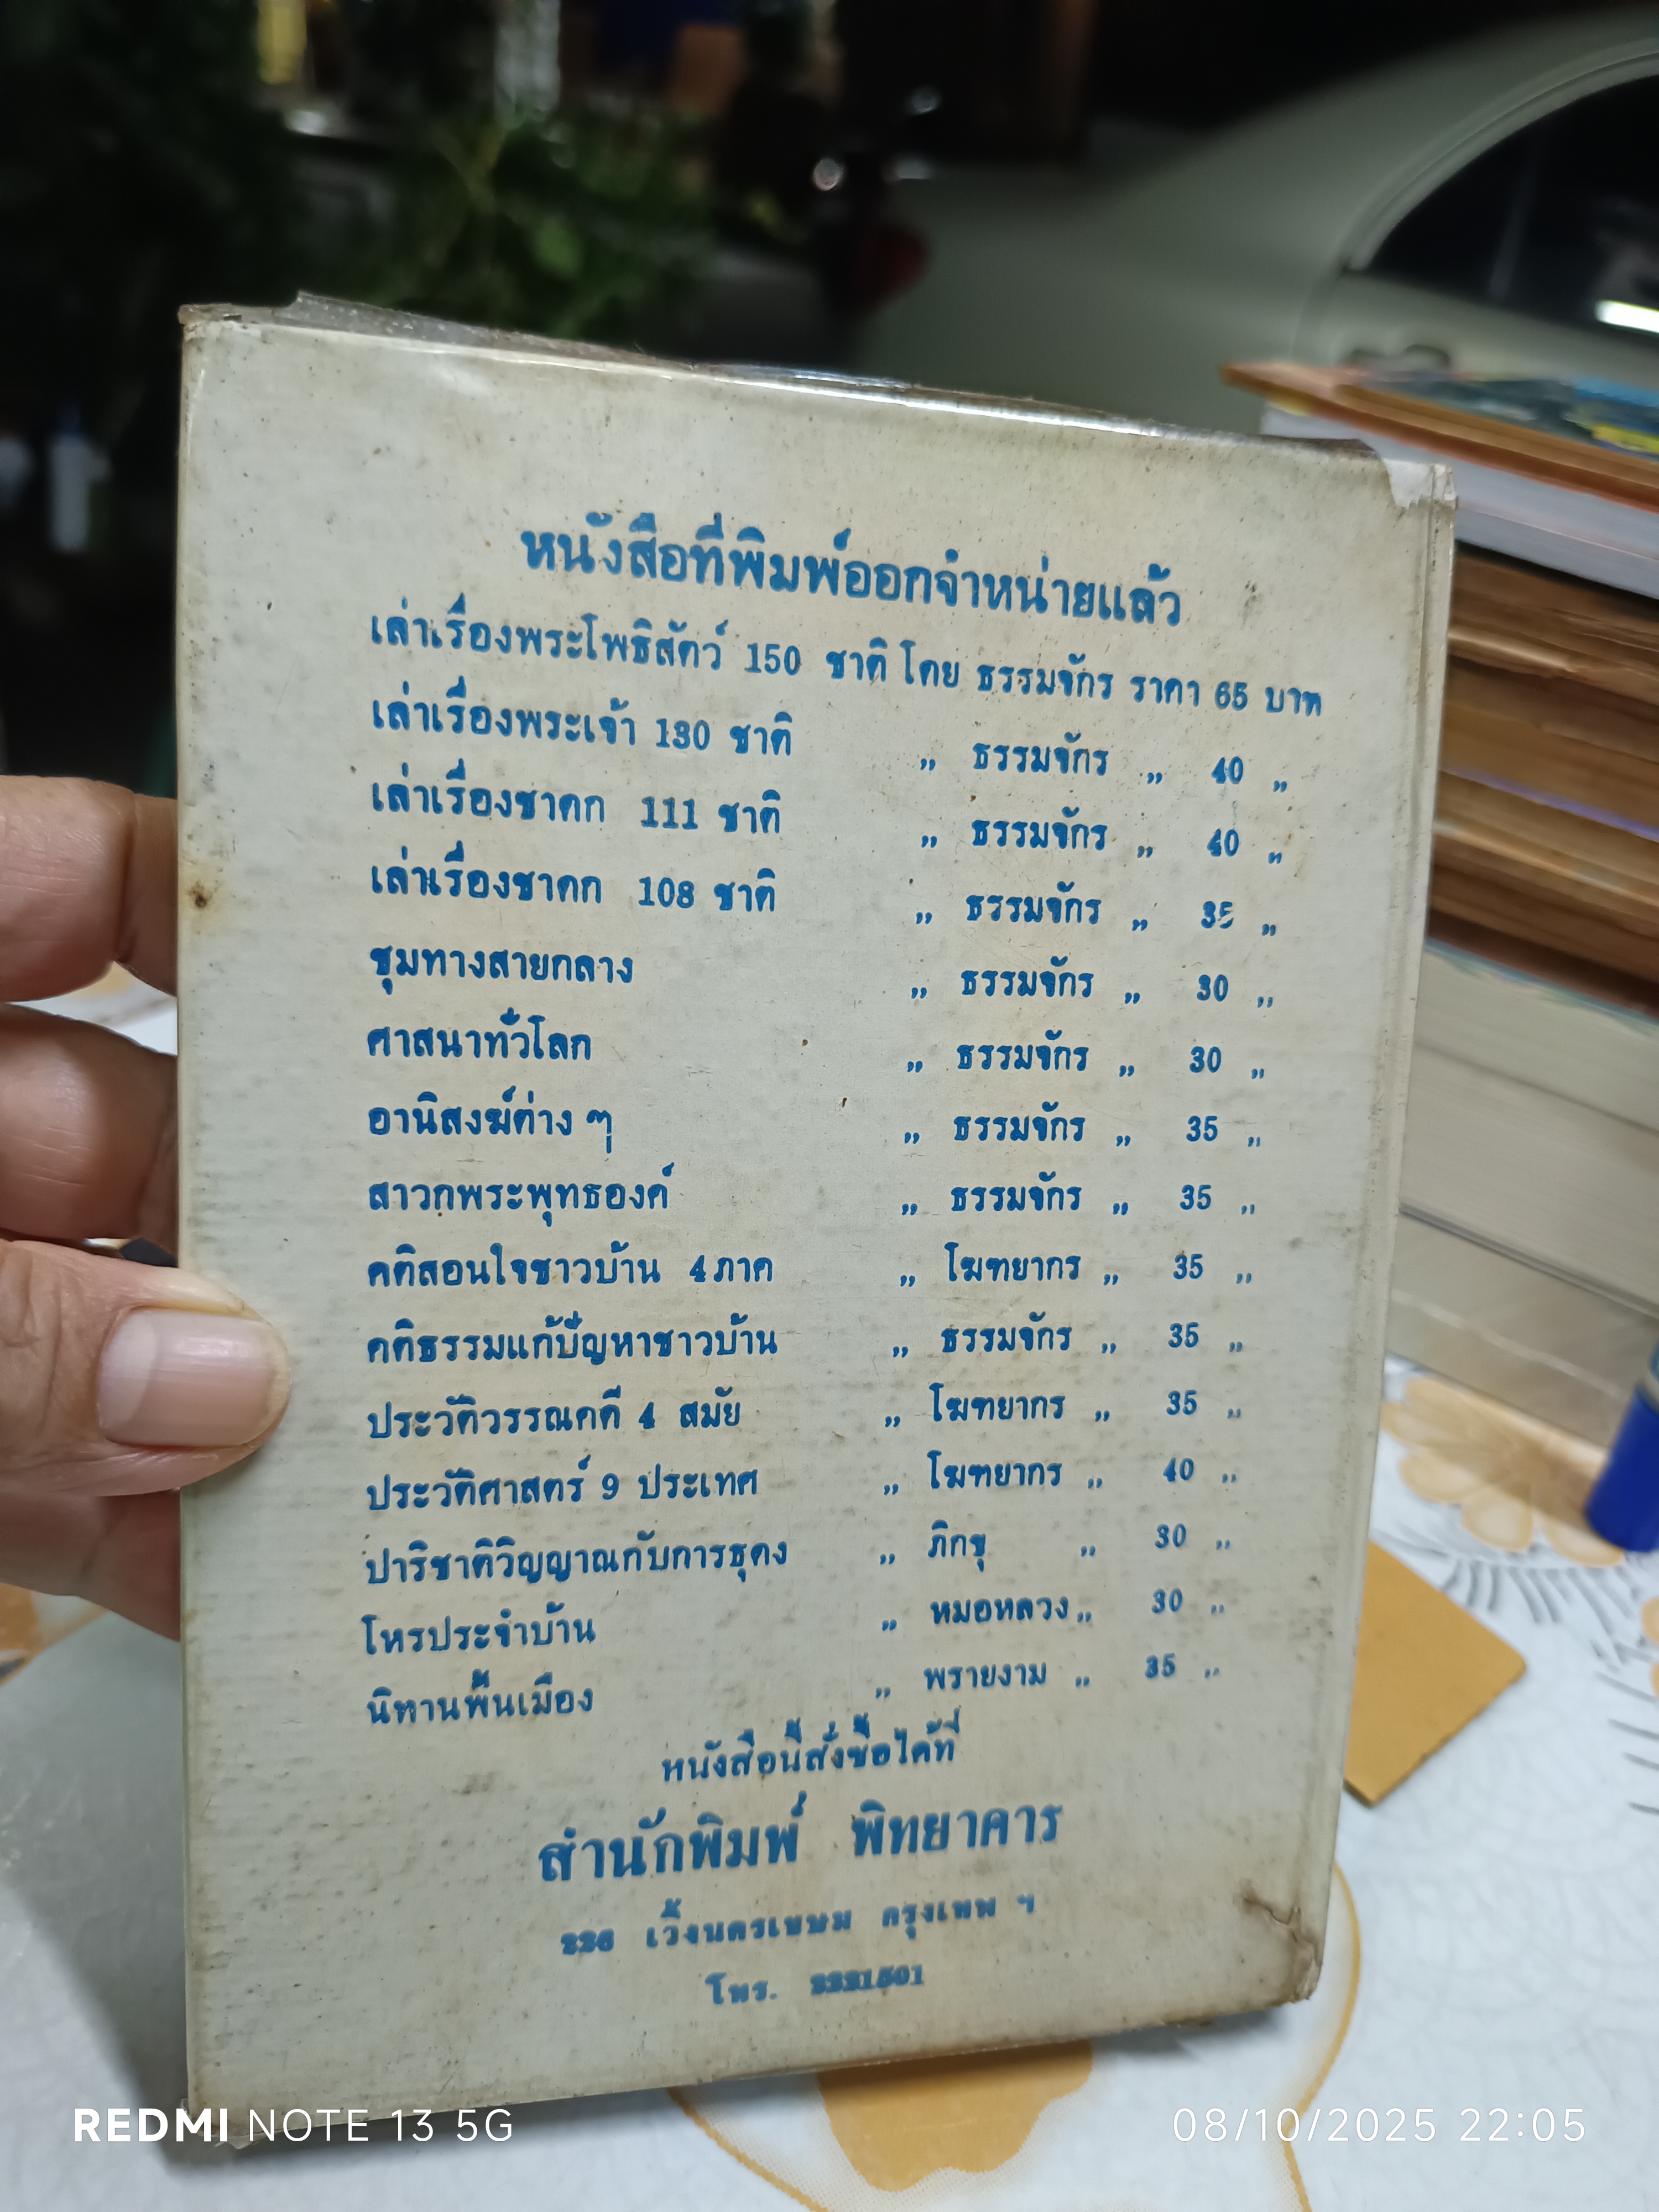 หนังสือที่พิมพ์ออกจำหน่ายแล้ว
เล่าเรื่องพระโพธิสัตว์ 150 ชาติ โดย ธรรมจักร ราคา 65 บาท
เล่าเรื่องพระเจ้า 130 ชาติ ,, ธรรมจักร ,, 40 ,,
เล่าเรื่องชาดก 111 ชาติ ,, ธรรมจักร ,, 40 ,,
เล่าเรื่องชาดก 108 ชาติ ,, ธรรมจักร ,, 35 ,,
ชุมทางสายกลาง ,, ธรรมจักร ,, 30 ,,
ศาสนาทั่วโลก ,, ธรรมจักร ,, 30 ,,
อานิสงฆ์ต่าง ๆ ,, ธรรมจักร ,, 35 ,,
สาวกพระพุทธองค์ ,, ธรรมจักร ,, 35 ,,
คติสอนใจชาวบ้าน 4 ภาค ,, โฆฑยากร ,, 35 ,,
คติธรรมแก้ปัญหาชาวบ้าน ,, ธรรมจักร ,, 35 ,,
ประวัติวรรณคดี 4 สมัย ,, โฆฑยากร ,, 35 ,,
ประวัติศาสตร์ 9 ประเทศ ,, โฆฑยากร ,, 40 ,,
ปาริชาติวิญญาณกับการธุดง ,, ภิกขุ ,, 30 ,,
โหรประจำบ้าน ,, หมอหลวง ,, 30 ,,
นิทานพื้นเมือง ,, พรายงาม ,, 35 ,,
หนังสือนี้สั่งซื้อได้ที่
สำนักพิมพ์ พิทยาคาร
226 เวิ้งนครเขษม กรุงเทพ ฯ
โทร. 2221501
REDMI NOTE 13 5G
08/10/2025 22:05